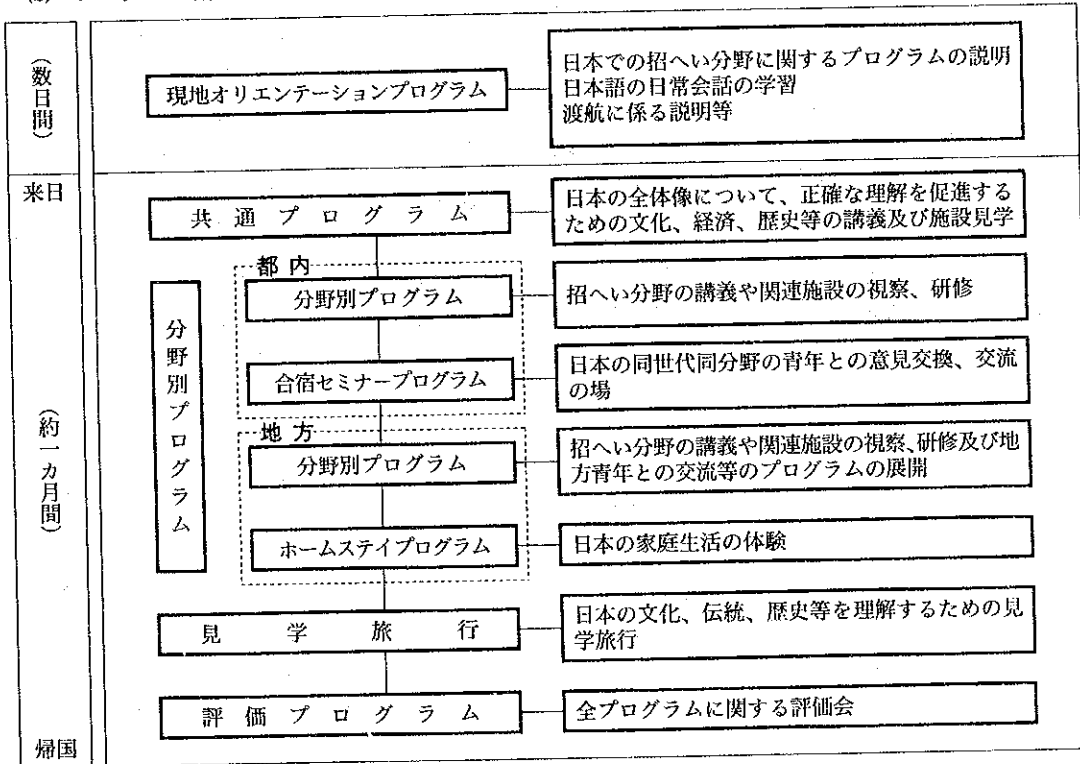 (数日間)
現地オリエンテーションプログラム
日本での招へい分野に関するプログラムの説明
日本語の日常会話の学習
渡航に係る説明等
来日
(約一カ月間)
共通プログラム
日本の全体像について、正確な理解を促進する
ための文化、経済、歴史等の講義及び施設見学
分野別プログラム
都内
分野別プログラム
招へい分野の講義や関連施設の視察、研修
合宿セミナープログラム
日本の同世代同分野の青年との意見交換、交流
の場
地方
分野別プログラム
招へい分野の講義や関連施設の視察、研修及び地
方青年との交流等のプログラムの展開
ホームステイプログラム
日本の家庭生活の体験
見学旅行
日本の文化、伝統、歴史等を理解するための見
学旅行
評価プログラム
全プログラムに関する評価会
帰国